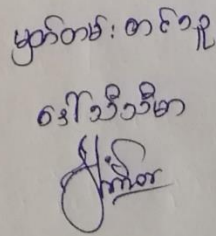 မှတ်တမ်းတင်သူ
ဒေါ်သီသီမာ